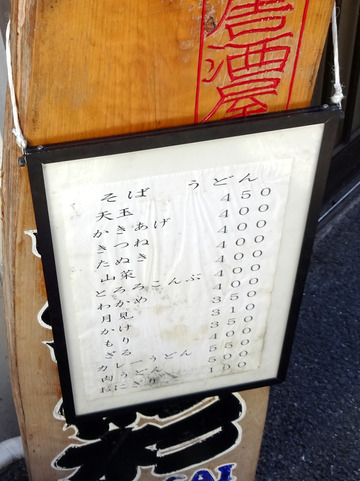 居酒屋
そば　うどん
天玉　450
かきあげ　400
きつね　400
たぬき　400
山菜　400
とろろこんぶ　400
わかめ　400
月見　350
かけ　310
もり　350
ざる　400
カレーうどん　550
肉うどん　500
おにぎり　100